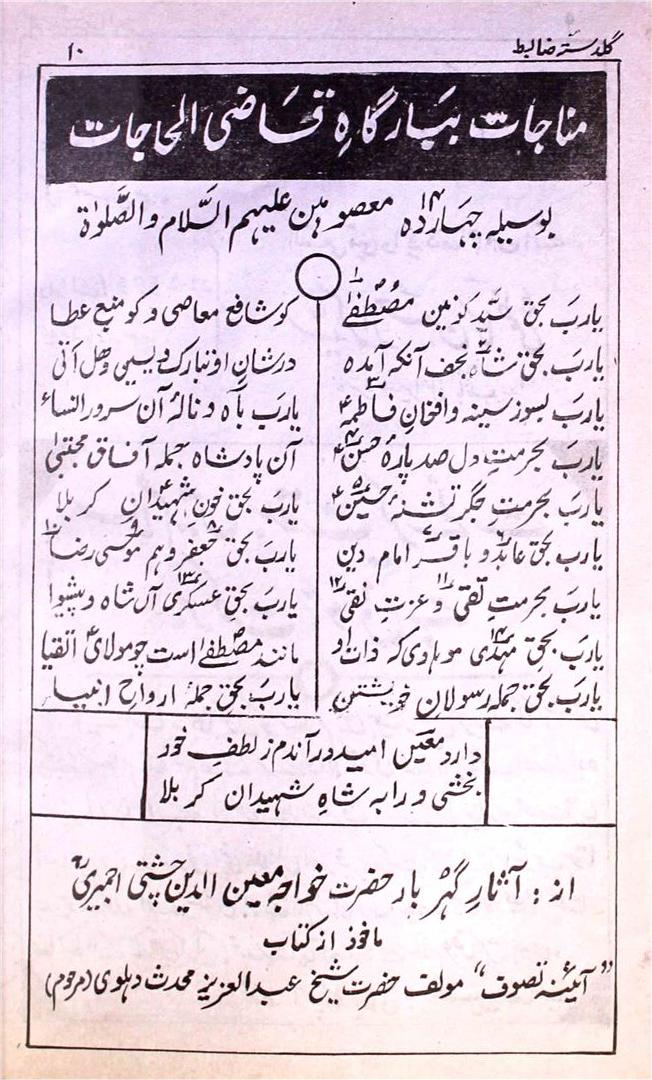 گلدستۂ ضابط
۱۰
مناجات ببارگاہِ قاضی الحاجات
بوسیلہ چہاردہ ۱۴ معصومین علیہم السّلام والصّلوٰۃ
یارب بحق سیّد کونین مصطفےٰ ۱ کو شافع معاصی و کو منبع عطا
یارب بحق شاہ ۲ نجف آنکہ آمدہ درشانِ او تبارک و یسیٰ و ھل اتی
یارب بسوزِ سینہ و افغانِ فاطمہ ۳ یارب باہ و نالۂ آن سرور النساء
یارب بحرمتِ دل صد پارۂ حسن ۴ آن پادشاہ جملہ آفاق مجتبیٰ
یارب بحرمتِ جگر تشنۂ حسین ۵ یارب بحق خونِ شہیدانِ کربلا
یارب بحق عابد ۶ و باقر ۷ امام دین یارب بحق جعفر ۸ و ہم موسیٰ ۹ رضا ۱۰
یارب بحرمتِ تقی ۱۱ و عزتِ نقی ۱۲ یارب بحقِ عسکری ۱۳ آں شاہ و پیشوا
یارب بحقِ مہدی ۱۴ موہادی کہ ذات او مانند مصطفےٰ است چو مولائ اتقیا
یارب بحق جملہ رسولانِ خویشتن یارب بحق جملۂ ارواحِ انبیا
دارد معین امید در آندم ز لطفِ خود
بخشی و را بہ شاہِ شہیدان کربلا
از : آثارِ گہر بار حضرت خواجہ معین الدین چشتی اجمیریؒ
ماخوذ از کتاب
"آئینۂ تصوف" مولف حضرت شیخ عبدالعزیز محدث دہلوی (مرحوم)